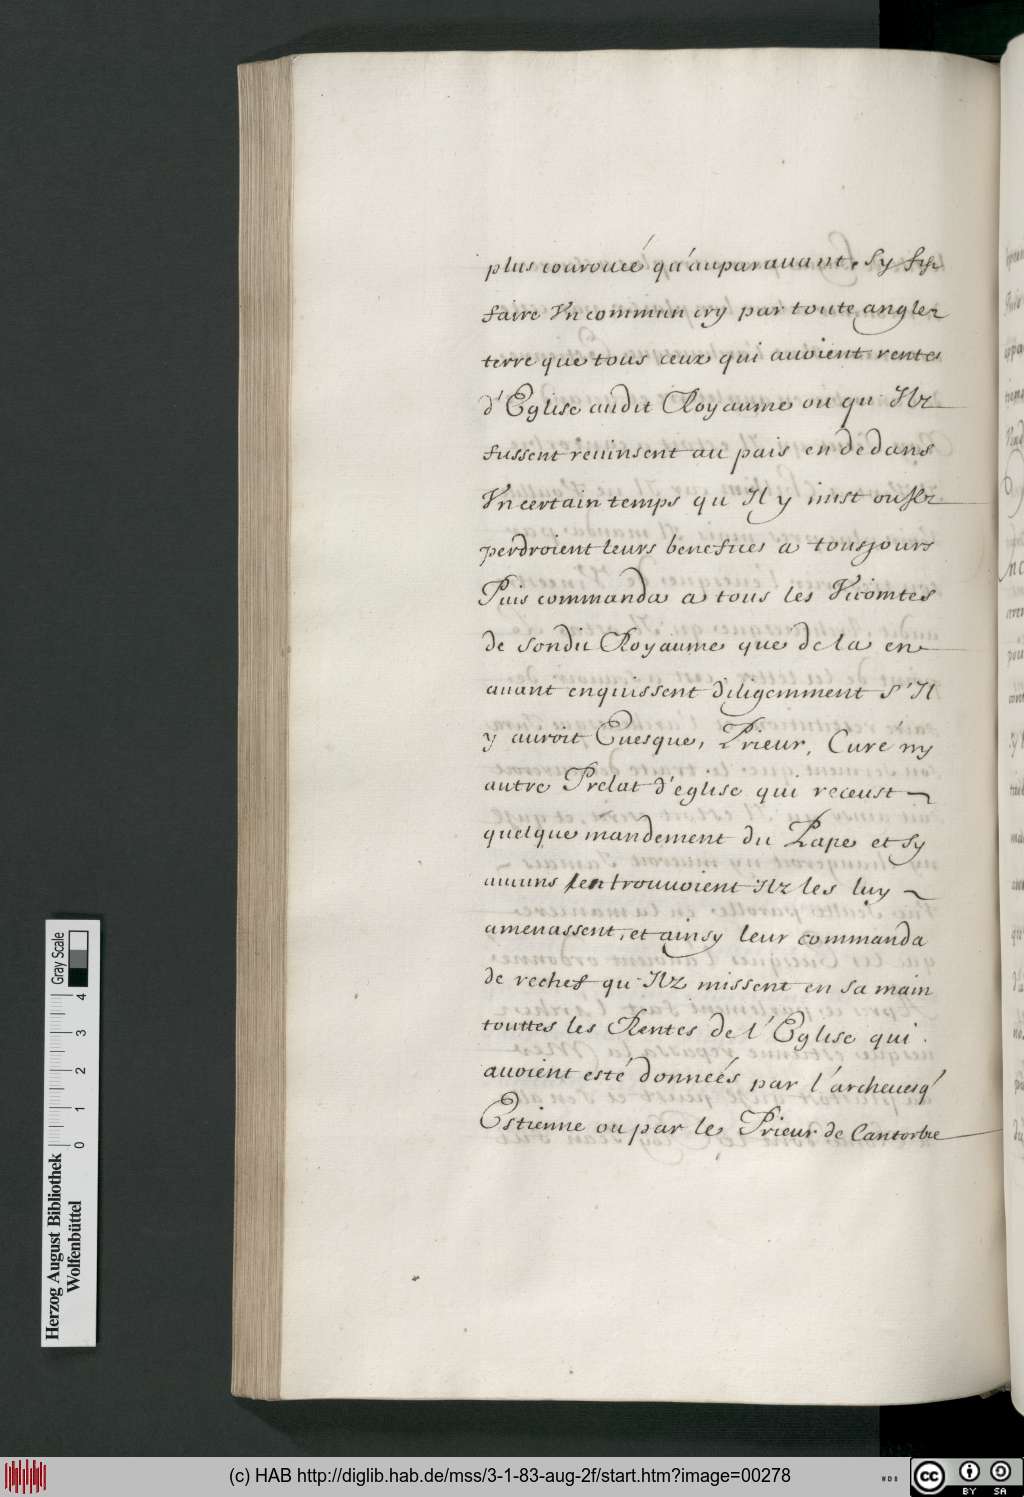 plus courouceé qu'auparauant. Sy fist
faire Vn commun cry par toute angle-
terre que tous ceux qui auoient rente
d'Eglise audit Royaume ou qu Ilz
fussent reuinsent au pais en dedans
Vn certain temps qu Il y mist ou Ilz
perdroient leurs benefices a tousjours
Puis commanda a tous les Vicomtes
de sondit Royaume que de la en
auant enquissent diligemment s'Il
y auroit Euesque, Prieur, Curé ny
autre Prelat d'eglise qui receust
quelque mandement du Pape et sy
aucuns sen trouuoient Ilz les luy
amenassent, et ainsy leur commanda
de rechef qu Ilz missent en sa main
touttes les Rentes de l'Eglise qui
auoient esté donneés par l'archeuesq'
Estienne ou par le Prieur de Cantorbie
Herzog August Bibliothek
Wolfenbüttel
0 1 2 3 4
Gray Scale
(c) HAB http://diglib.hab.de/mss/3-1-83-aug-2f/start.htm?image=00278
WDB
cc BY SA